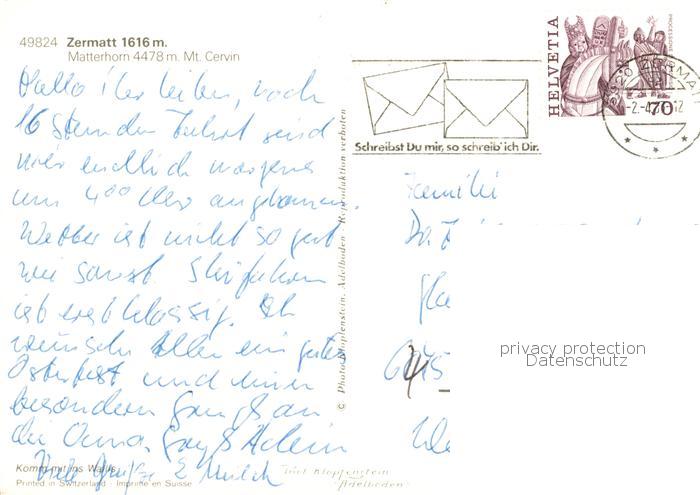 49824 Zermatt 1616 m.
Matterhorn 4478 m. Mt. Cervin
Hallo ihr lieben, nach
16 Stunden Fahrt sind
wir endlich morgens
um 4⁰⁰ Uhr angekommen.
Wetter ist nicht so gut
wie sonst. Skifahren
ist erstklassig. Ich
wünsche allen ein gutes
Osterfest und einen
besonderen Gruß an
die Oma.
Viele Grüße
Komm mit ins Wallis
Printed in Switzerland - Imprimé en Suisse
© Photo Klopfenstein, Adelboden. Reproduktion verboten
Schreibst Du mir, so schreib' ich Dir.
HELVETIA
70
Familie
privacy protection
Datenschutz
Klopfenstein
Adelboden